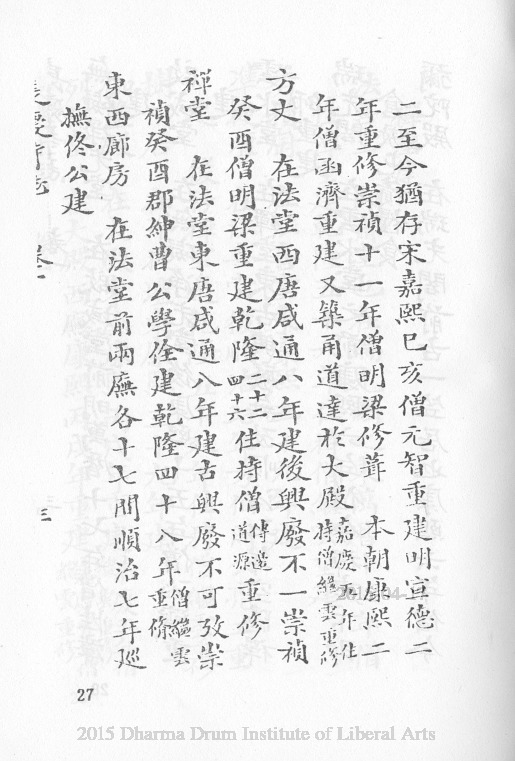 二至今猶存宋嘉熙巳亥僧元智重建明宣德二
年重修崇禎十一年僧明梁修葺　本朝康熙二
年僧函濟重建又築甬道達於大殿嘉慶年住持僧繼雲重修
方丈　在法堂西唐咸通八年建後興廢不一崇禎
癸酉僧明梁重建乾隆二十二四十六住持僧傳道源重修
禪堂　在法堂東唐咸通八年建古興廢不可攷崇
禎癸酉郡紳曹公學佺建乾隆四十八年僧繼雲重修
東西廊房　在法堂前兩廡各十七間順治七年廵
撫佟公建
三
27
2015 Dharma Drum Institute of Liberal Arts